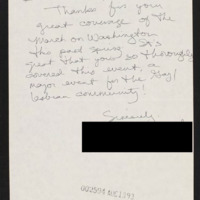 Thanks for your
great coverage of the
March on Washington
this past spring. It's
great that you so thoroughly
covered this event, a
major event for the Gay/
Lesbian community!
Sincerely,